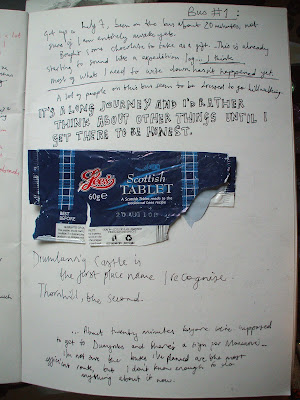 Bus #1:
Got up @ 7, been on the bus about 20 minutes, not
sure if I am entirely awake yet.
Bought some chocolate to take as a gift. This is already
starting to sound like a expedition log - I think
most of what I need to write down hasn't happened yet.
A lot of people on this bus seem to be dressed to go hillwalking.
IT'S A LONG JOURNEY AND I'D RATHER
THINK ABOUT OTHER THINGS UNTIL I
GET THERE TO BE HONEST.
Lees
Scottish
TABLET
60g e
A Scottish Tablet made to the
traditional Lees recipe
BEST
BEFORE
20 AUG 10
Drumlanrig Castle is
the first place name I recognise.
Thornhill, the second.
... About twenty minutes before we're supposed
to get to Dumfries and there's a sign for Moniaive...
I'm not sure the buses I've planned are the most
efficient route, but I don't know enough to do
anything about it now.